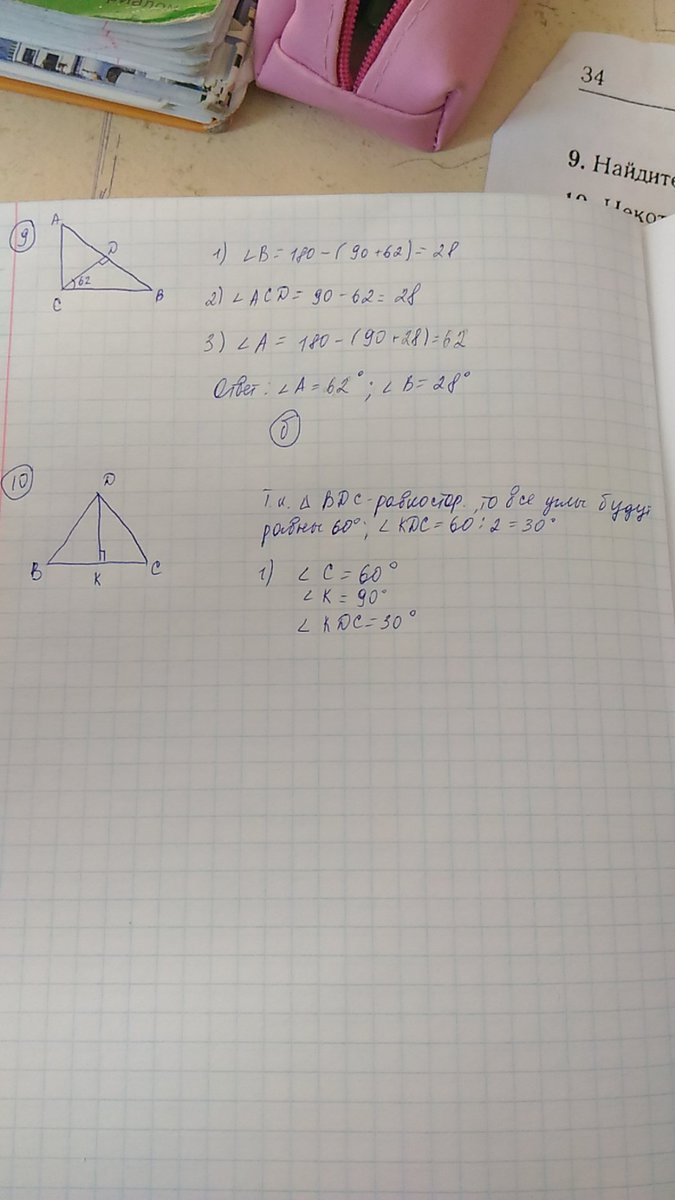 34
9. Найдите
9
A
D
62
C
B
1) ∠B = 180 - (90 + 62) = 28
2) ∠ACD = 90 - 62 = 28
3) ∠A = 180 - (90 + 28) = 62
Ответ: ∠A = 62°; ∠B = 28°
б
10
D
B
K
C
Т.к. △ BDC - равностор., то все углы будут
равны 60°; ∠KDC = 60 : 2 = 30°
1) ∠C = 60°
∠K = 90°
∠KDC = 30°